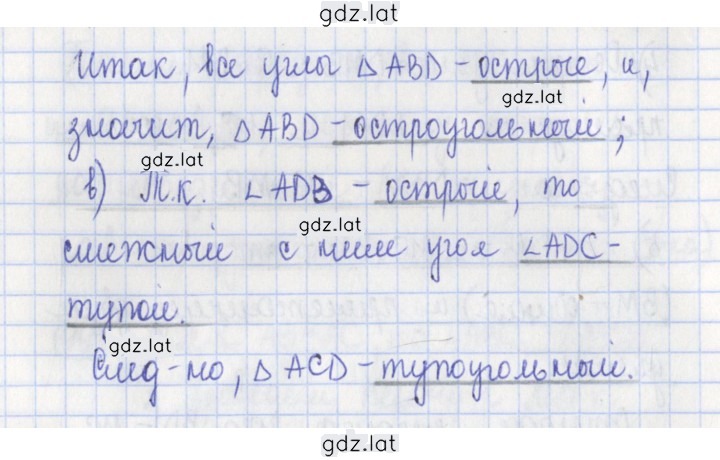 gdz.lat
Итак, все углы △ ABD - острые, и,
gdz.lat
значит, △ ABD - остроугольный;
gdz.lat
в) Т.к. ∠ADB - острый, то
gdz.lat
смежный с ним угол ∠ADC -
тупой.
gdz.lat
След-но, △ ACD - тупоугольный.
gdz.lat